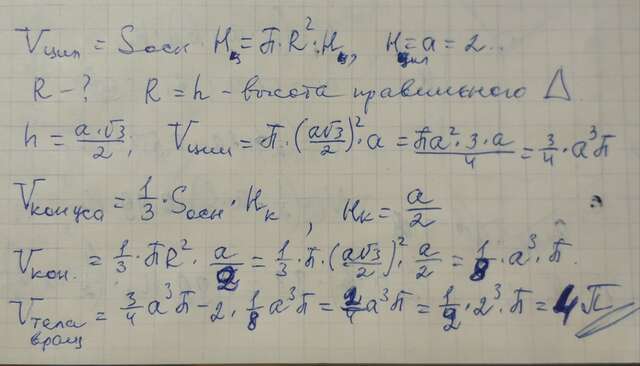 Vцил = Sосн · Hц = П · R² · Hц, Hцил = a = 2...
R - ? R = h - высота правильного Δ.
h = a·√3/2; Vцил = П · (a√3/2)² · a = Пa² · 3 · a/4 = 3/4 · a³П
Vконуса = 1/3 · Sосн · Hк, Hк = a/2
Vкон. = 1/3 · ПR² · a/2 = 1/3 · П · (a√3/2)² · a/2 = 1/8 · a³ · П.
Vтела вращ = 3/4 a³П - 2 · 1/8 a³П = 2/4 a³П = 1/2 · 2³ · П = 4П